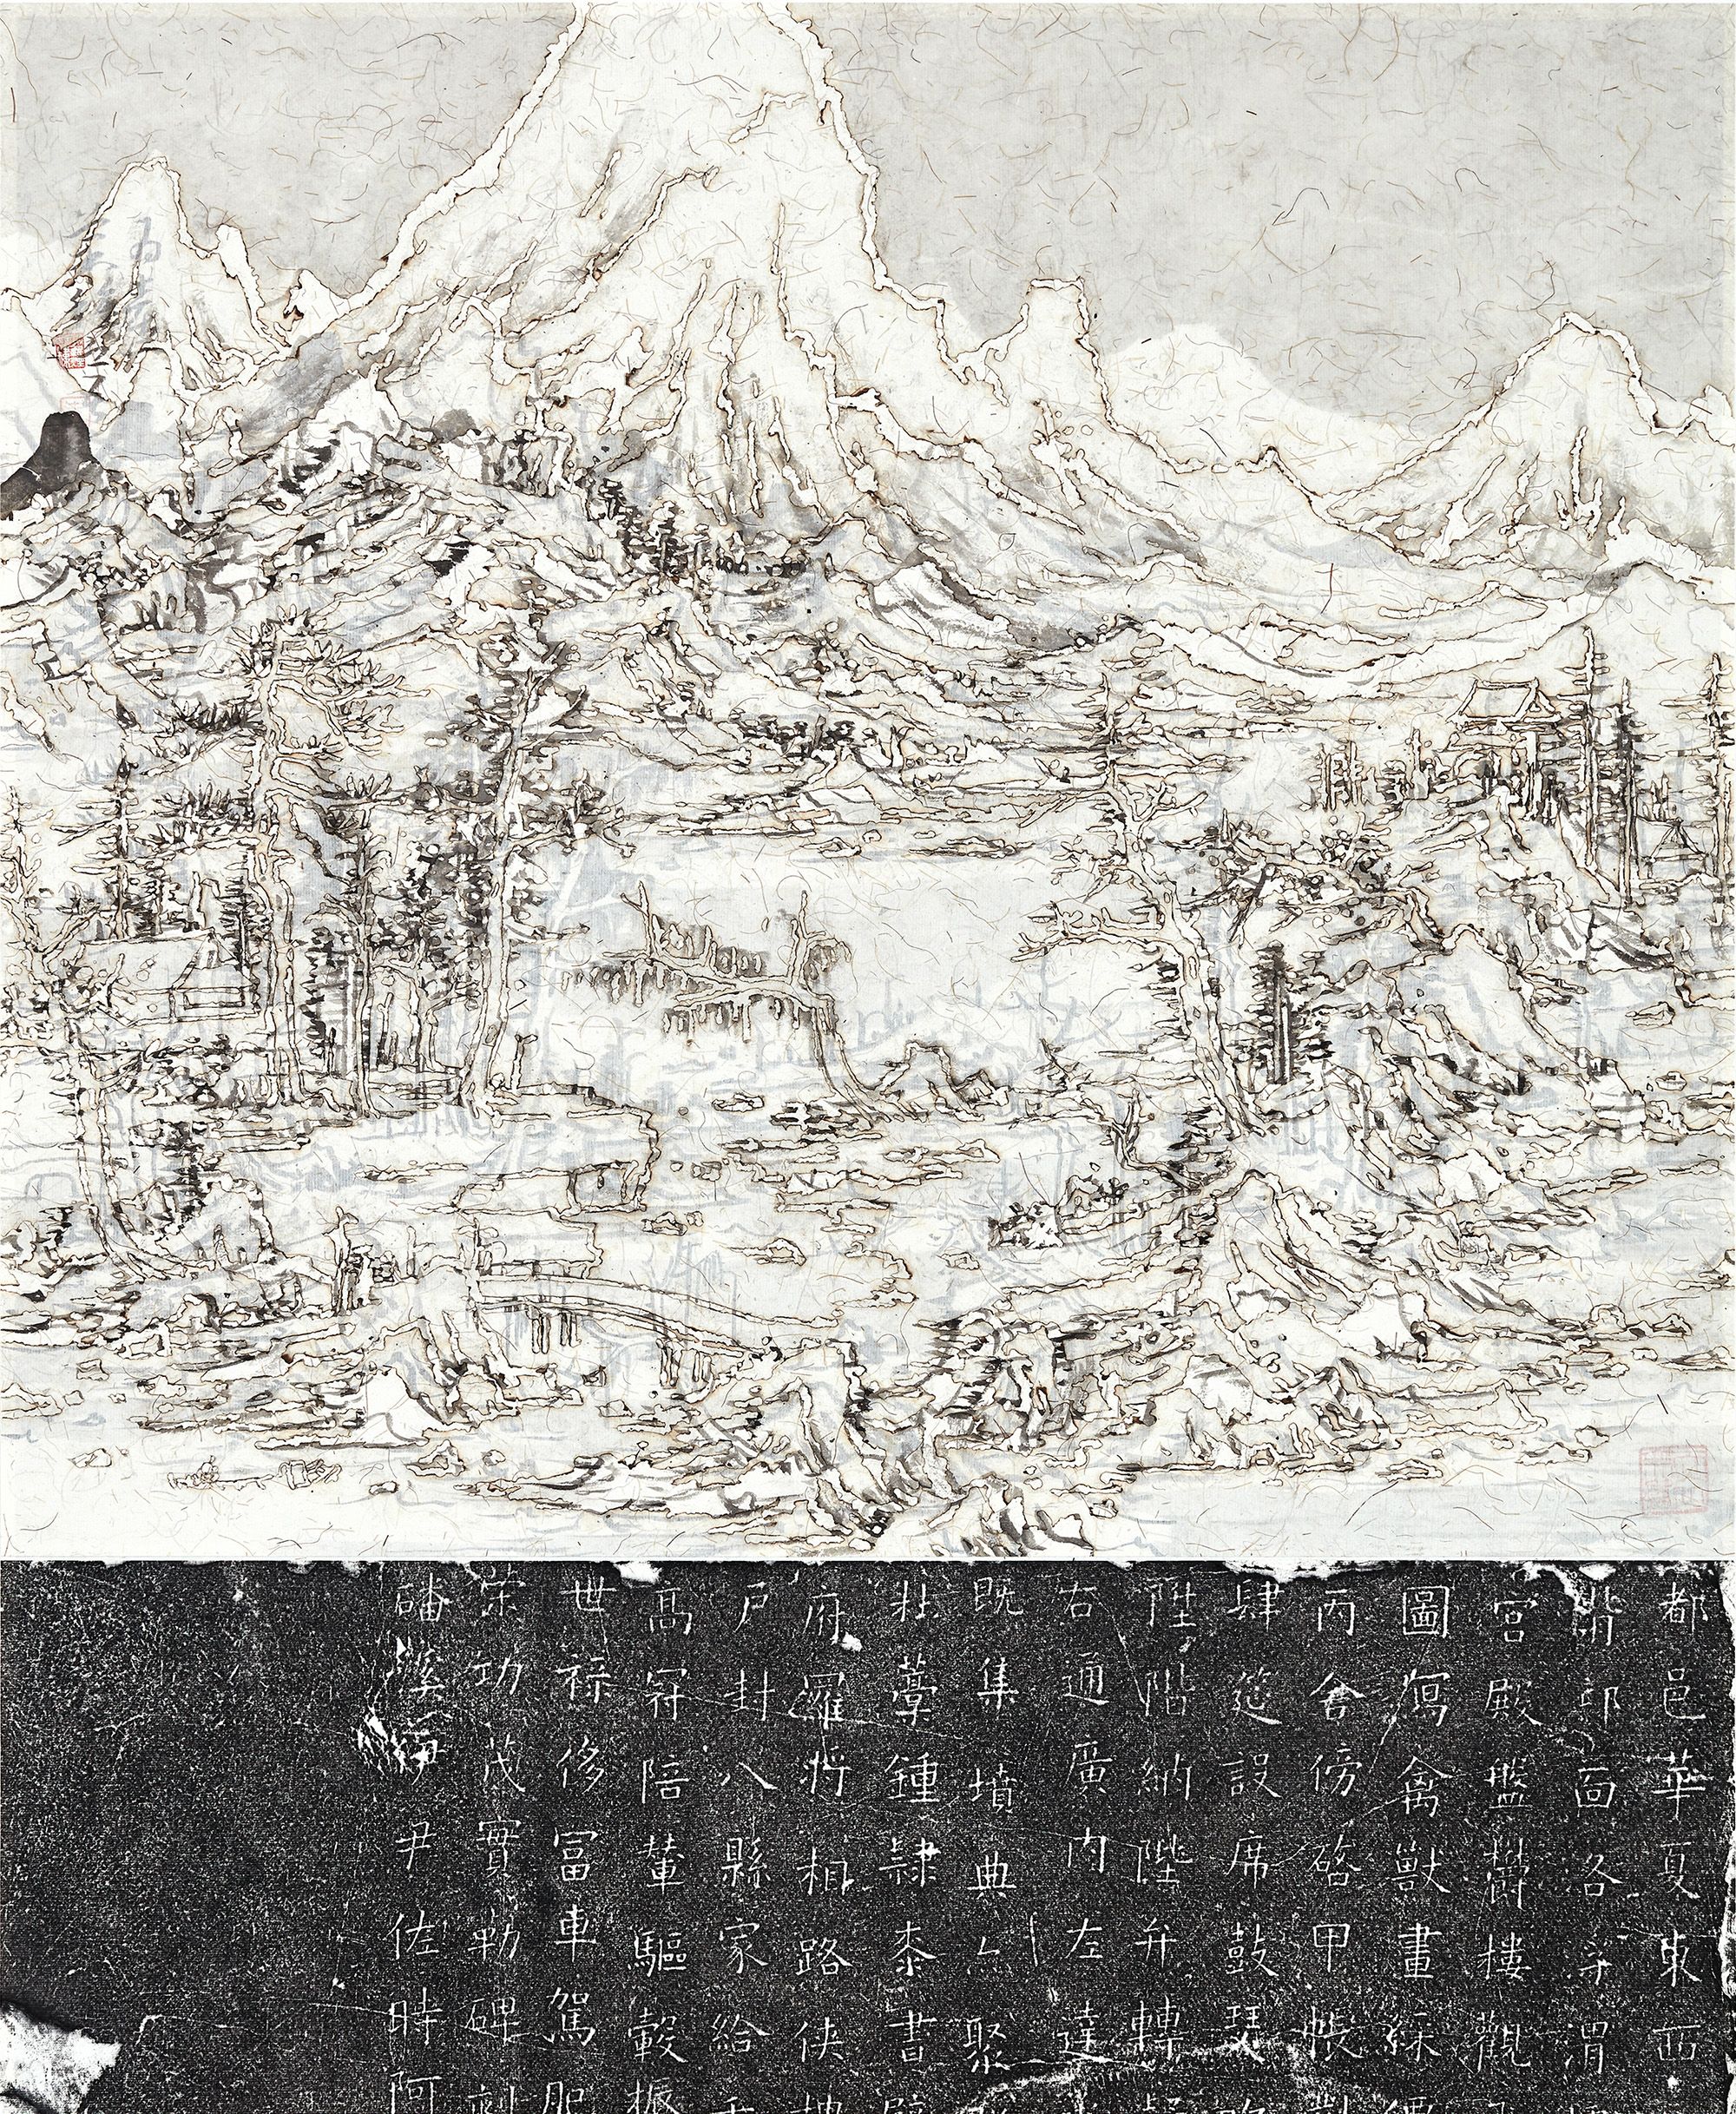 都邑華夏東西
背邙面洛浮渭
宮殿盤鬱樓觀
圖寫禽獸畫綵
丙舍傍啓甲帳
肆筵設席鼓瑟
陞階納陛弁轉
右通廣內左達
既集墳典亦聚
杜稾鍾隸漆書
府羅將相路俠
戶封八縣家給
高冠陪輦驅轂振
世祿侈富車駕肥
策功茂實勒碑刻
磻溪伊尹佐時阿